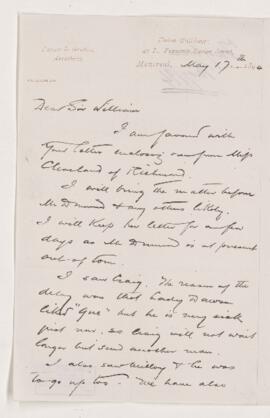 Montreal, May 17th
Dear Sir William
I am favored with
your letter enclosing one from Miss
Cleveland of Richmond.
I will bring the matter before
Mr. Drummond & any others likely.
I will keep her letter for a few
days as Mr Drummond is at present
out of town.
I saw Craig. The reason of the
delay was that
but he is very sick
just now. So Craig will not wait
longer but send another man.
I also saw & he was
to go up too. We have also